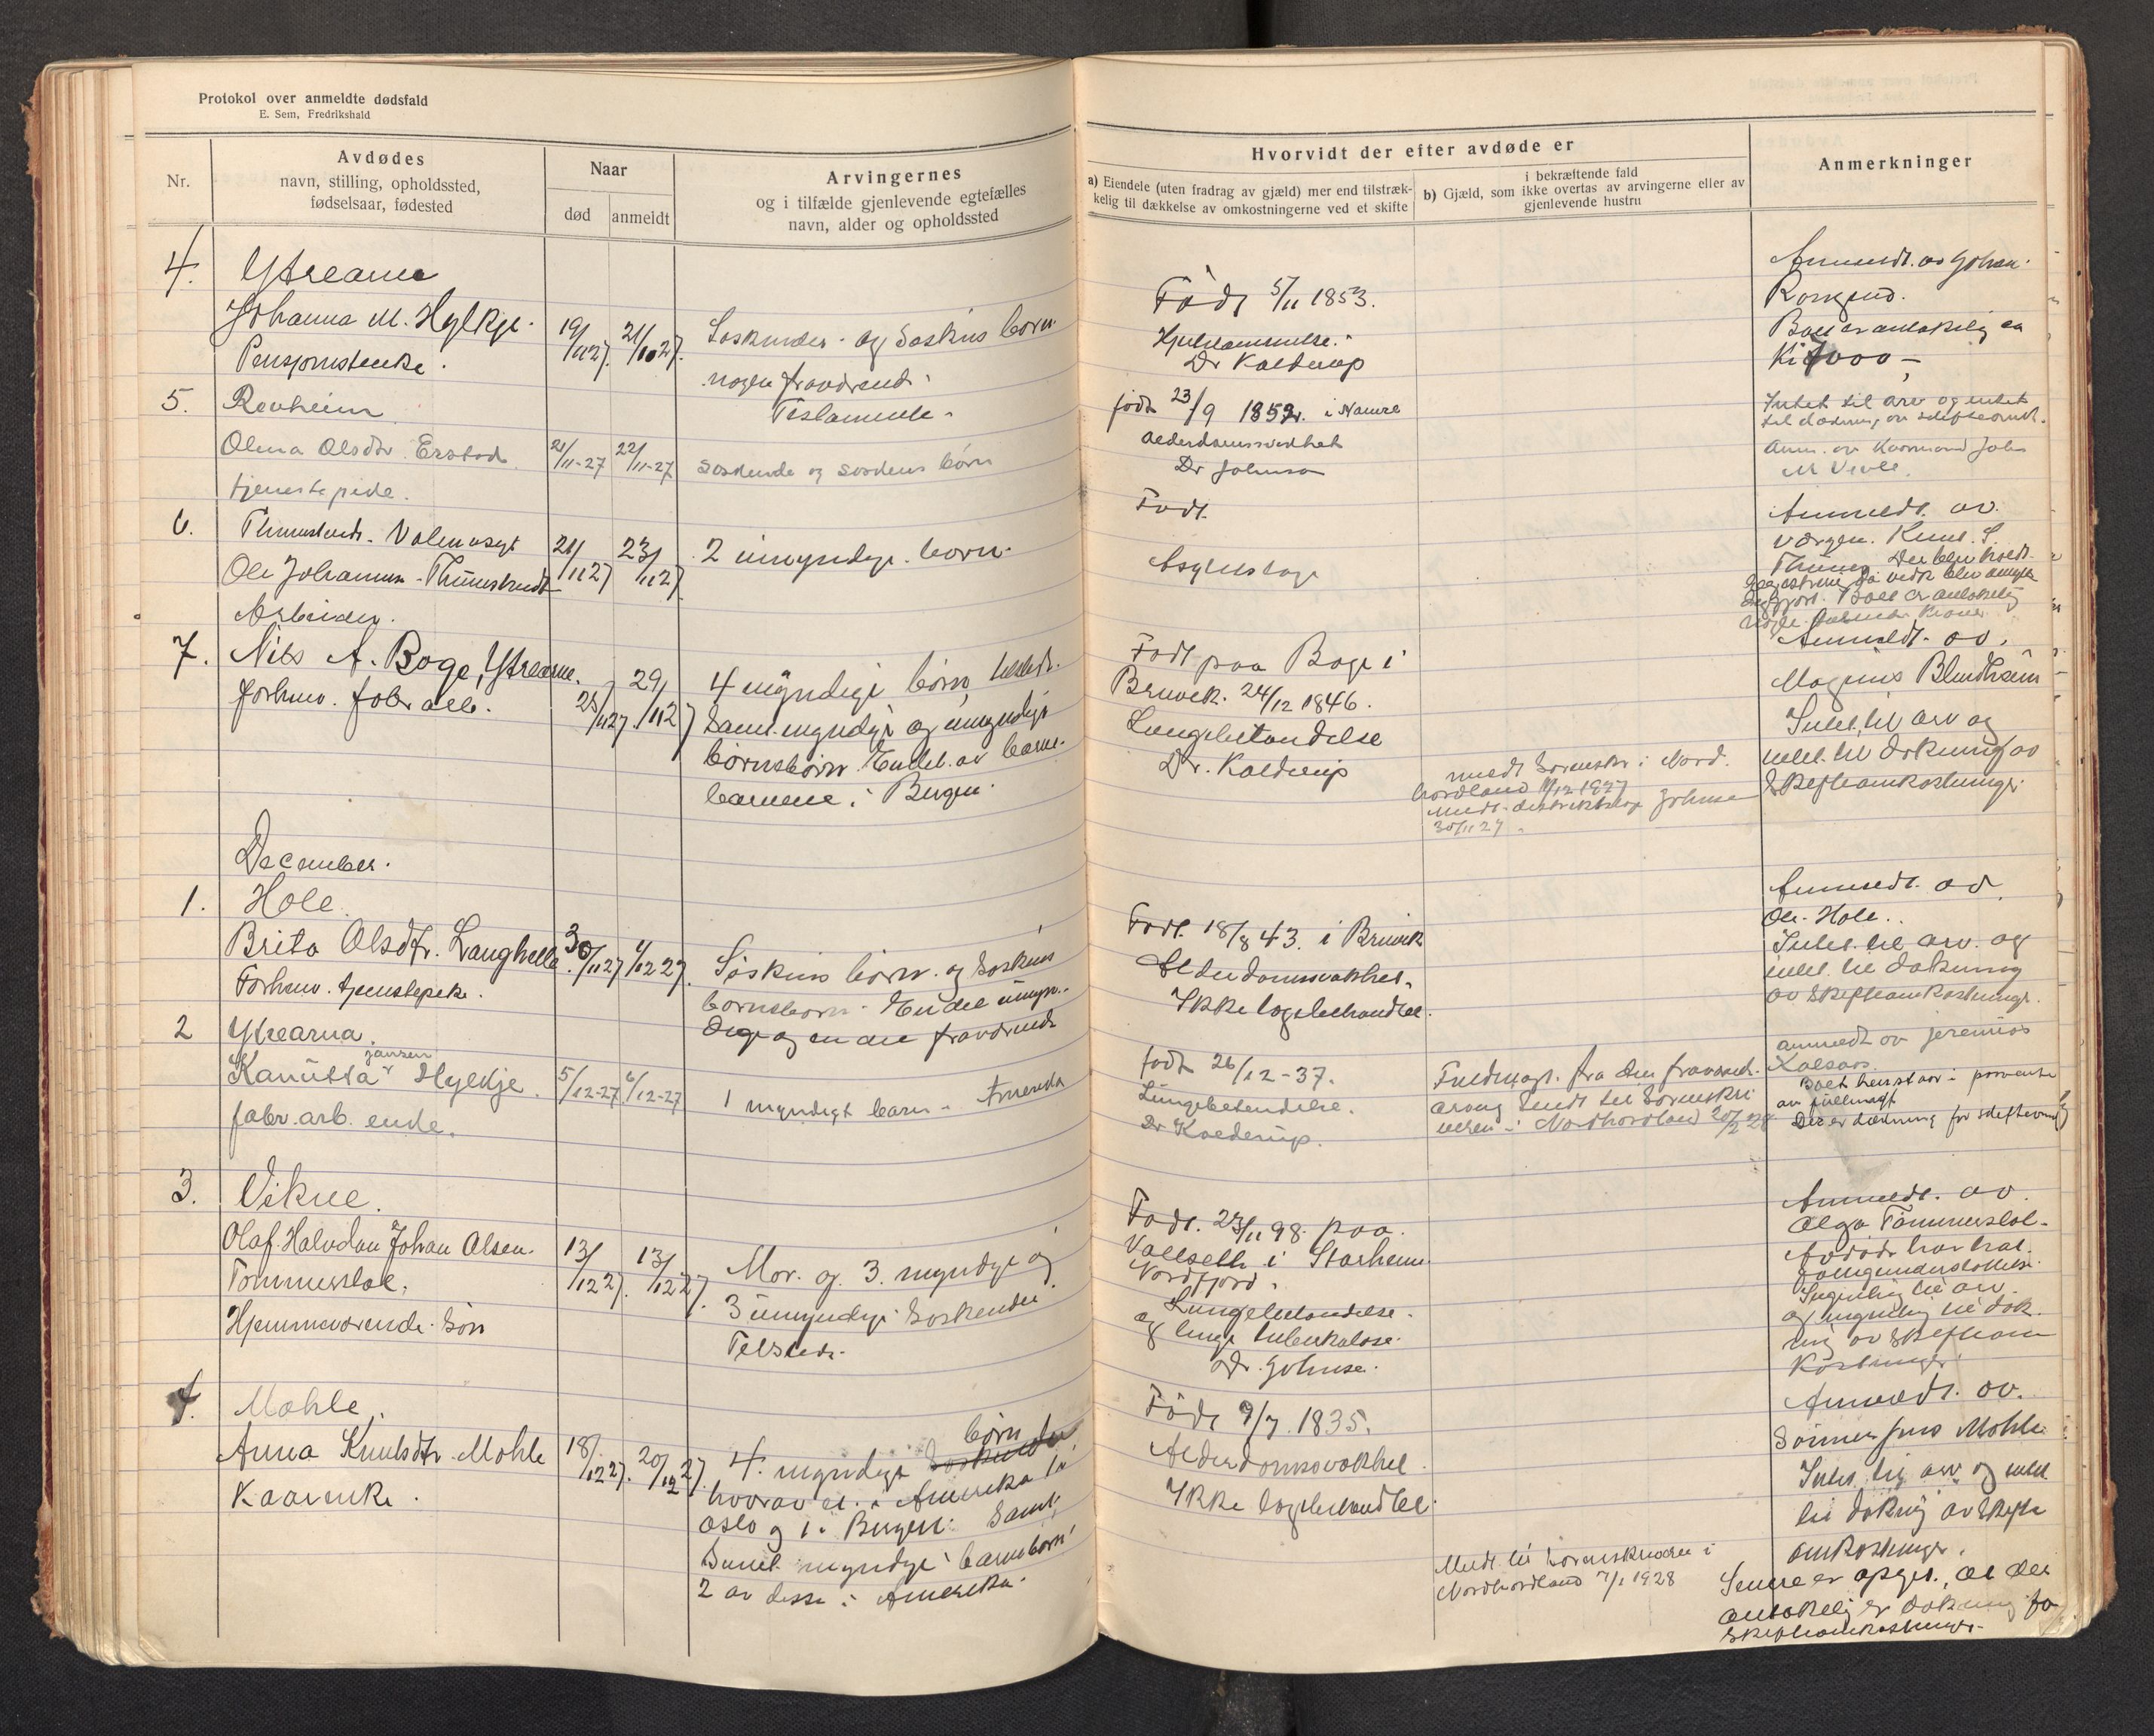 Protokol over anmeldte dødsfald
E. Sem, Fredrikshald
Nr.
Avdødes
navn, stilling, opholdssted,
fødselsaar, fødested
Naar
død
anmeldt
Arvingernes
og i tilfælde gjenlevende egtefælles
navn, alder og opholdssted
Hvorvidt der efter avdøde er
a) Eiendele (uten fradrag av gjæld) mer end tilstræk-
kelig til dækkelse av omkostningerne ved et skifte
i bekræftende fald
b) Gjæld, som ikke overtas av arvingerne eller av
gjenlevende hustru
Anmerkninger
4. Ytrearne
Johanna M. Hylkje.
19/1127. 21/1127.
Søskender og Søskins børn
nogen fraværende
Testamente.
Født 5/11 1853.
Dr Kalderup
Anmeldt. av Johan
Boet er antakelig ca
5. Revheim
Olina Olsdtr. Erstad
tjenestepike.
21/11-27 22/11-27
Søskende og søskens børn
født 23/9 i Hamre
Alderdomssvakhet
Dr Johnsen
Intet til arv og intet
til dækning av skifteomk.
6.
Ole Johannes
Arbeider.
21/1127 23/1127
2 umyndige børn.
Født.
Asyllæge
Anmeldt. av.
værgen. Knut. S.
Boet er antakelig
7. Nils A. Boge, Ytrearne.
Forhenv. fabr arb.
25/1127. 29/1127
4 myndige børn,
samt myndige og umyndige
børnsbørn. Endel av barne-
barnene i Bergen.
Født paa Boge i
Bruvik. 24/12 1846.
Lungebetændelse
Dr. Kalderup
meldt Sorenskr i Nord-
hordland 11/12 1927
Meldt distriktslæge Johnsen
30/11 27.
Anmeldt. av.
Magnus Blindheim
Intet til arv og
intet til dækning av
Skifteomkostninger.
December.
1. Hole.
Brita Olsdtr. Langhelle
Forhenv. tjenstepike.
30/1127. 1/1227.
Søskins børn. og Søskins
børnsbørn. Endel umyn-
dige og en del fraværende
Født. 18/8 43. i Bruvik
Alderdomssvakhet.
Ikke lægebehandlet.
Anmeldt. av
Ole Hole.
Intet til arv. og
intet til dækning
av Skifteomkostninger.
2 Ytrearna.
Jansen
Kanutta Hylkje.
fabr. arb. enke.
5/12-27. 6/12-27
1 myndigt barn - Amerika
født 26/12-37.
Lungebetendelse.
Dr Kalderup.
Fuldmagt. fra den fraværende
arving sendt til Sorenskri
veren i Nordhordland 20/2 28
anmeldt av Jeremias
Kalsaas.
av fullmagt
Der er dækning for skifteomk
3. Vikne.
Olaf Halvdan Johan Olsen.
Tømmerstøl.
Hjemmeværende Søn
13/1227. 13/1227.
Mor. og. 3. myndige og
3 umyndige Søskender
Tilstede.
Født. 23/11 98. paa
i Starheim
Nordfjord.
Lungebetændelse.
og lunge tuberkulose.
Dr. Johnse.
Anmeldt. av.
Olga Tømmerstøl.
Avdøde har hat.
fattigunderstøttelse.
Ingenting til arv.
og ingenting til dæk-
ning av Skifteom
kostninger.
4. Mohle.
Anna Knutsdtr. Mohle
Kaarenke.
18/1227. 20/1227.
4. myndige børn
hvorav et i Amerika 1 i
Oslo og 1 i Bergen. Samt
myndige barnebørn
2 av disse i Amerika.
Født 9/7. 1835.
Alderdomssvakhet
Ikke Lægebehandlet.
Meldt til Sorenskriveren i
Nordhordland 7/1 1928
Anmeldt. av.
Sønnen Jens Mohle
Intet til arv og intet
til dækning av Skifte
omkostninger.
Senere er opgit., at det
antakelig er dækning for
Skifteomkostninger.